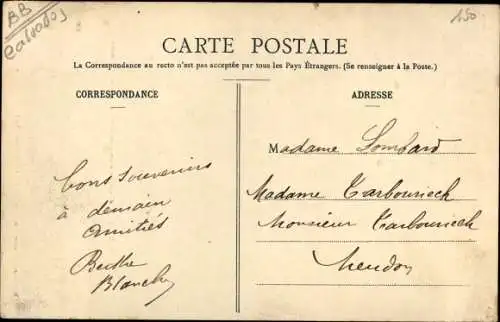 BB
Calvados
150
CARTE POSTALE
La Correspondance au recto n'est pas acceptée par tous les Pays Étrangers. (Se renseigner à la Poste.)
CORRESPONDANCE
ADRESSE
Bons souvenirs
à demain
Amitiés
Berthe
Blanche
Madame Lombard
Madame Tarbouriech
Monsieur Tarbouriech
Meudon